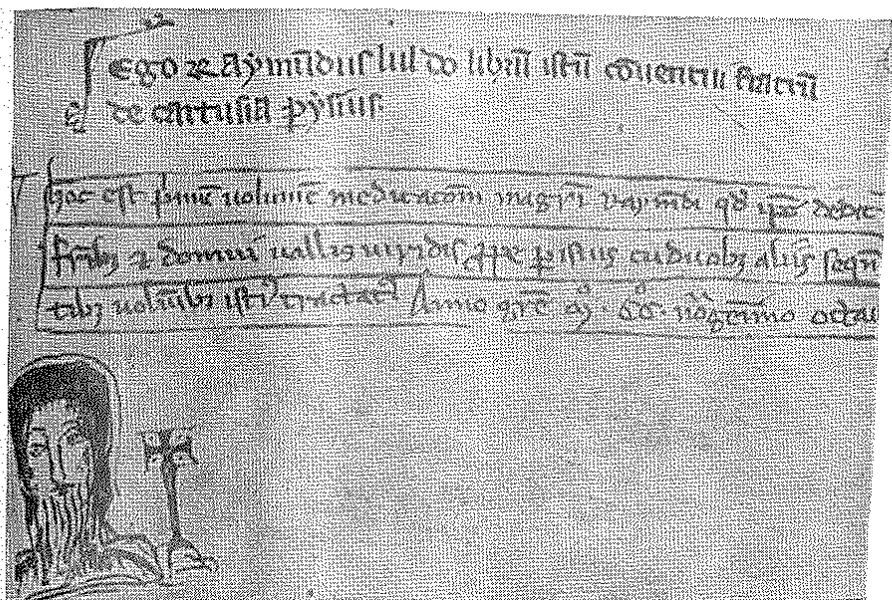 Ego Raymūdus lul do librū istū cōuentui fratrū
de cartusia pysius
hoc est primū uolumē meditacōm magr̄i raymūdi qd̄ ip̄e dedit
fratribꝫ et domui uallis uiridis prope parisius cū duobꝫ aliis sequen
tibꝫ uolumībꝫ isti tractatꝰ Anno gr̄e mͦ ccͦ nōgesimo octau